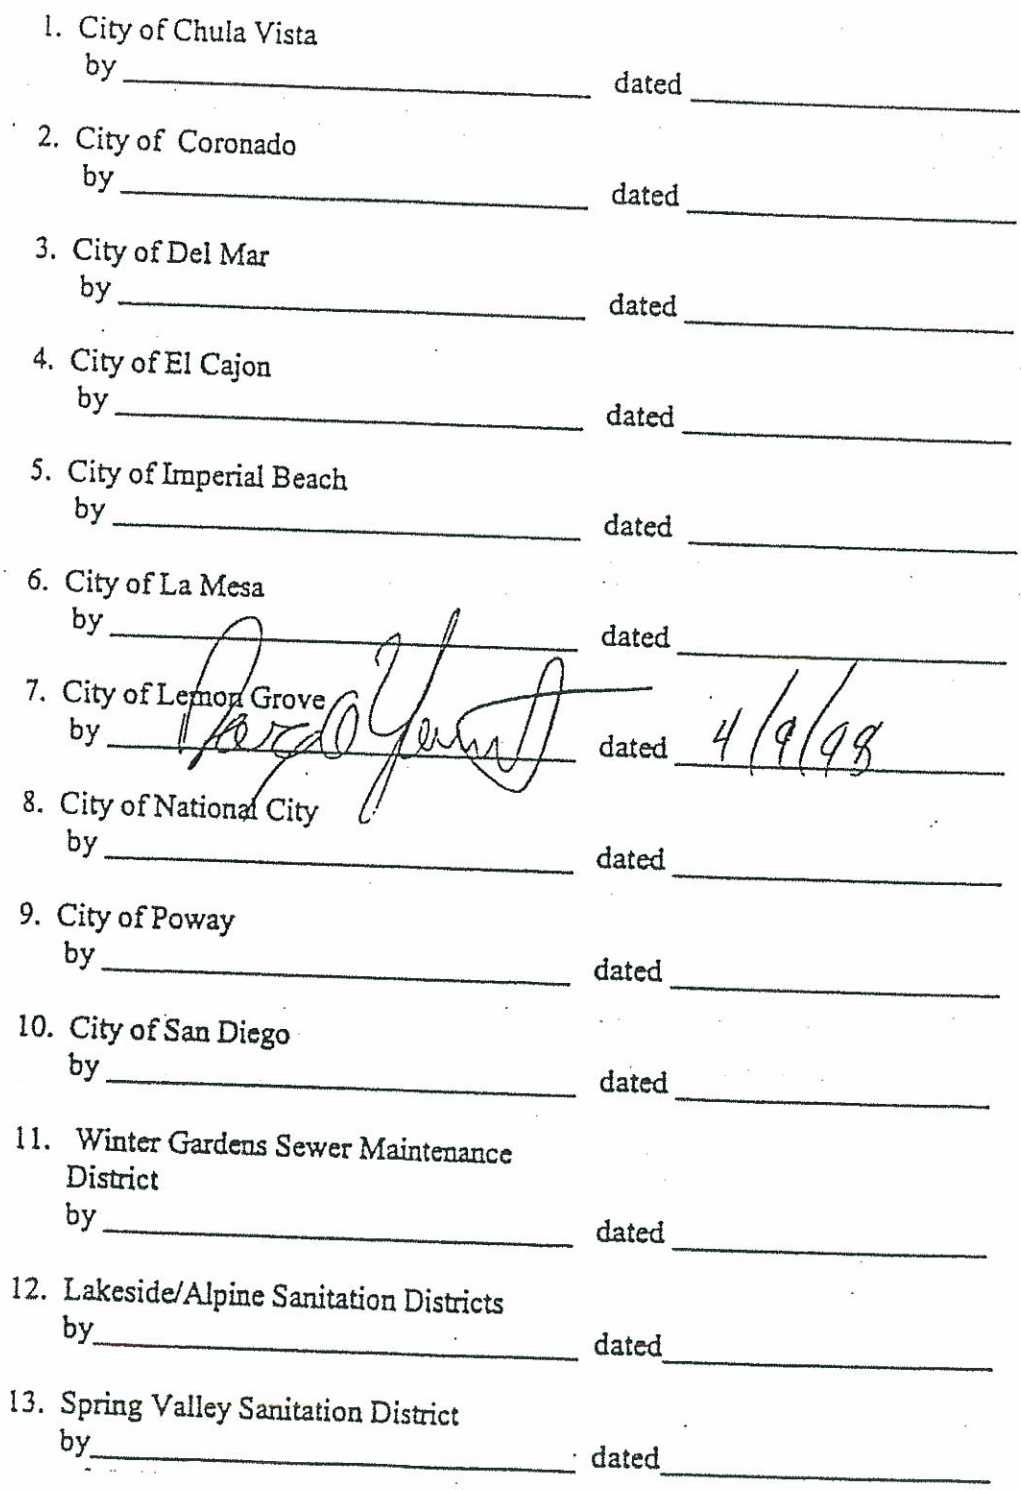 1. City of Chula Vista
by dated
2. City of Coronado
by dated
3. City of Del Mar
by dated
4. City of El Cajon
by dated
5. City of Imperial Beach
by dated
6. City of La Mesa
by dated
7. City of Lemon Grove
by dated 4/9/98
8. City of National City
by dated
9. City of Poway
by dated
10. City of San Diego
by dated
11. Winter Gardens Sewer Maintenance
District
by dated
12. Lakeside/Alpine Sanitation Districts
by dated
13. Spring Valley Sanitation District
by dated